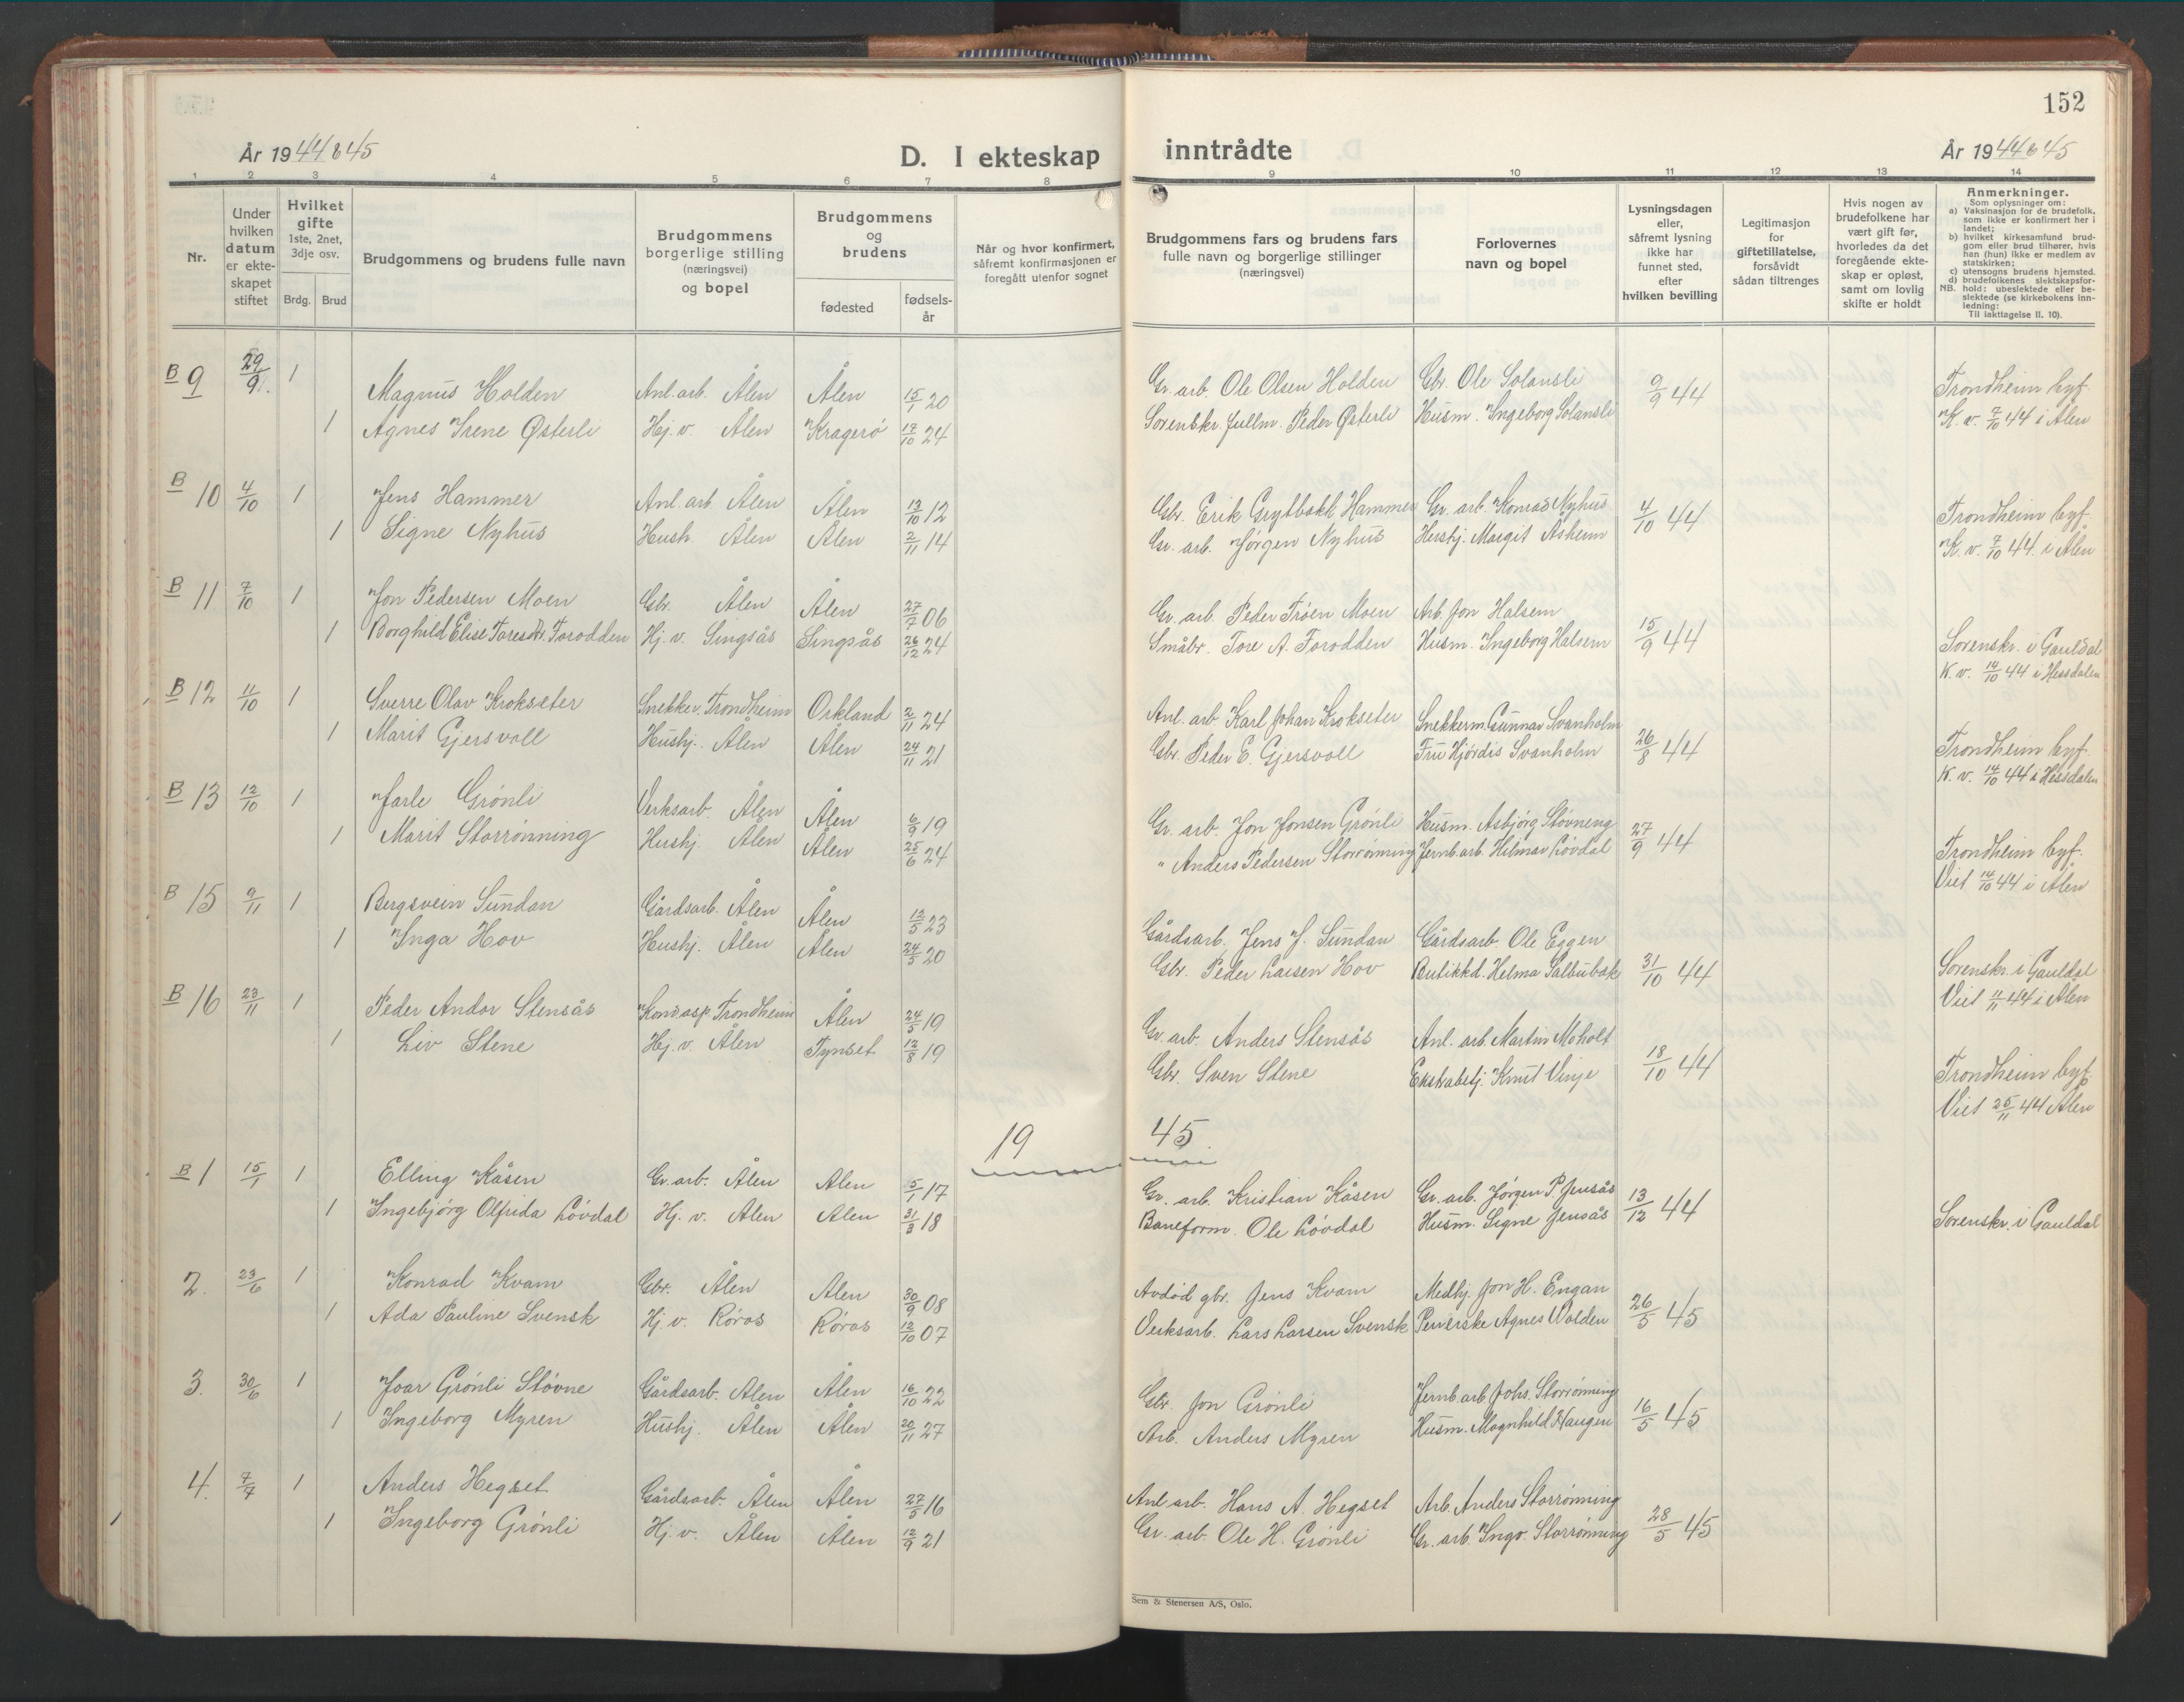 152
År 1944 & 45
D. I ekteskap inntrådte
År 1944 & 45
1 2 3 4 5 6 7 8 9 10 11 12 13 14
Nr.
Under hvilken datum er ekte-skapet stiftet
Hvilket gifte 1ste, 2net, 3dje osv.
Brdg. Brud
Brudgommens og brudens fulle navn
Brudgommens borgerlige stilling (næringsvei) og bopel
Brudgommens og brudens
fødested
fødsels-år
Når og hvor konfirmert, såfremt konfirmasjonen er foregått utenfor sognet
Brudgommens fars og brudens fars fulle navn og borgerlige stillinger (næringsvei)
Forlovernes navn og bopel
Lysningsdagen eller, såfremt lysning ikke har funnet sted, efter hvilken bevilling
Legitimasjon for giftetillatelse, forsåvidt sådan tiltrenges
Hvis nogen av brudefolkene har vært gift før, hvorledes da det foregående ekte-skap er opløst, samt om lovlig skifte er holdt
Anmerkninger.
Som oplysninger om:
a) Vaksinasjon for de brudefolk, som ikke er konfirmert her i landet;
b) hvilket kirkesamfund brud-gom eller brud tilhører, hvis han (hun) ikke er medlem av statskirken;
c) utensogns brudens hjemsted.
d) brudefolkenes slektskapsfor-hold: ubeslektede eller be-slektede (se kirkebokens inn-ledning:
NB. Til iakttagelse II. 10).
B 9 29/9. 1 Magnus Holden Anl. arb. Ålen Ålen 15/1 20 Gr. arb. Ole Olsen Holden Gbr. Ole Solansli 9/9 44 Trondheim byf.
1 Agnes Irene Østerli Hj. v. Ålen Kragerø 17/10 24 Sorenskr. fullm. Peder Østerli Husm. Ingeborg Solansli K. v. 7/10 44 i Ålen
B 10 4/10 1 Jens Hammer Anl. arb. Ålen Ålen 13/10 12 Gbr. Erik Grytbakk Hammer Gr. arb. Konrad Nyhus 4/10 44 Trondheim byf.
1 Signe Nyhus Hush. Ålen Ålen 2/11 14 Gr. arb. Jørgen Nyhus Hushj. Margit Åsheim K. v. 7/10 44. i Ålen
B 11 7/10 1 Jon Pedersen Moen Gbr. Ålen Ålen 27/7 06 Gr. arb. Peder Trøen Moen Arb. Jon Halsem 15/9 44 Sorenskr. i Gauldal
1 Borghild Elise Toresdtr. Forodden Hj. v. Singsås Singsås 26/12 24 Småbr. Tore A. Forodden Husm. Ingeborg Halsem K. v. 14/10 44 i Hessdalen
B 12 11/10 1 Sverre Olav Krokseter Snekker. Trondheim Orkland 2/11 24 Anl. arb. Karl Johan Krokseter Snekkerm. Gunnar Svanholm 26/8 44 Trondheim byf.
1 Marit Gjersvoll Hushj. Ålen Ålen 24/11 21 Gbr. Peder E. Gjersvoll Fru Hjørdis Svanholm K. v. 14/10 44 i Hessdalen
B 13 12/10 1 Jarle Grönli Verksarb. Ålen Ålen 6/9 19 Gr. arb. Jon Jonsen Grönli Husm. Asbjørg Støvneng 27/9 44 Trondheim byf.
1 Marit Storrönning Hushj. Ålen Ålen 25/6 24 " Anders Pedersen Storrönning Jernb.arb. Hilmar Lövdal Viet 14/10 44 i Ålen
B 15 9/11 1 Bergsvein Sundan Gårdsarb. Ålen Ålen 12/5 23 Gårdsarb. Jens J. Sundan Gårdsarb. Ole Eggen 31/10 44 Sorenskr. i Gauldal
1 Inga Hov Hushj. Ålen Ålen 24/5 20 Gbr. Peder Larsen Hov Butikkd. Helma Salbubak Viet 11/11 44 i Ålen
B 16 23/11 1 Peder Andor Stensås Kond. asp. Trondheim Ålen 24/5 19 Gr. arb. Anders Stensås Anl. arb. Martin Moholt 18/10 44 Trondheim byf.
1 Liv Stene Hj. v. Ålen Tynset 12/8 19 Gbr. Sven Stene Ekstrabetj. Knut Vinje Viet 25/11 44 Ålen
19 45.
B 1 15/1 1 Elling Kåsen Gr. arb. Ålen Ålen 5/1 17 Gr. arb. Kristian Kåsen Gr. arb. Jørgen P. Jensås 13/12 44 Sorenskr. i Gauldal
1 Ingebjørg Olfrida Lövdal Hj. v. Ålen Ålen 31/3 18 Baneform. Ole Lövdal Husm. Signe Jensås
2. 23/6 1 Konrad Kvam Gbr. Ålen Ålen 30/9 08 Avdød gbr. Jens Kvam Medhj. Jon H. Engan 26/5 45
1 Ada Pauline Svensk Hj. v. Röros Röros 12/10 07 Verksarb. Lars Larsen Svensk Agnes Volden
3. 30/6 1 Joar Grönli Stövne Gårdsarb. Ålen Ålen 16/10 22 Gbr. Jon Grönli Jernb. arb. Johs. Storrönning 16/5 45
1 Ingeborg Myren Hushj. Ålen Ålen 20/11 27 Arb. Anders Myren Husm. Magnhild Haugen
4. 7/7 1 Anders Hegset Gårdsarb. Ålen Ålen 27/5 16 Anl. arb. Hans A. Hegset Arb. Anders Storrönning 28/5 45
1 Ingeborg Grönli Hj. v. Ålen Ålen 12/9 21 Gr. arb. Ole H. Grönli Gr. arb. Ingv. Storrönning
Sem & Stenersen A/S, Oslo.